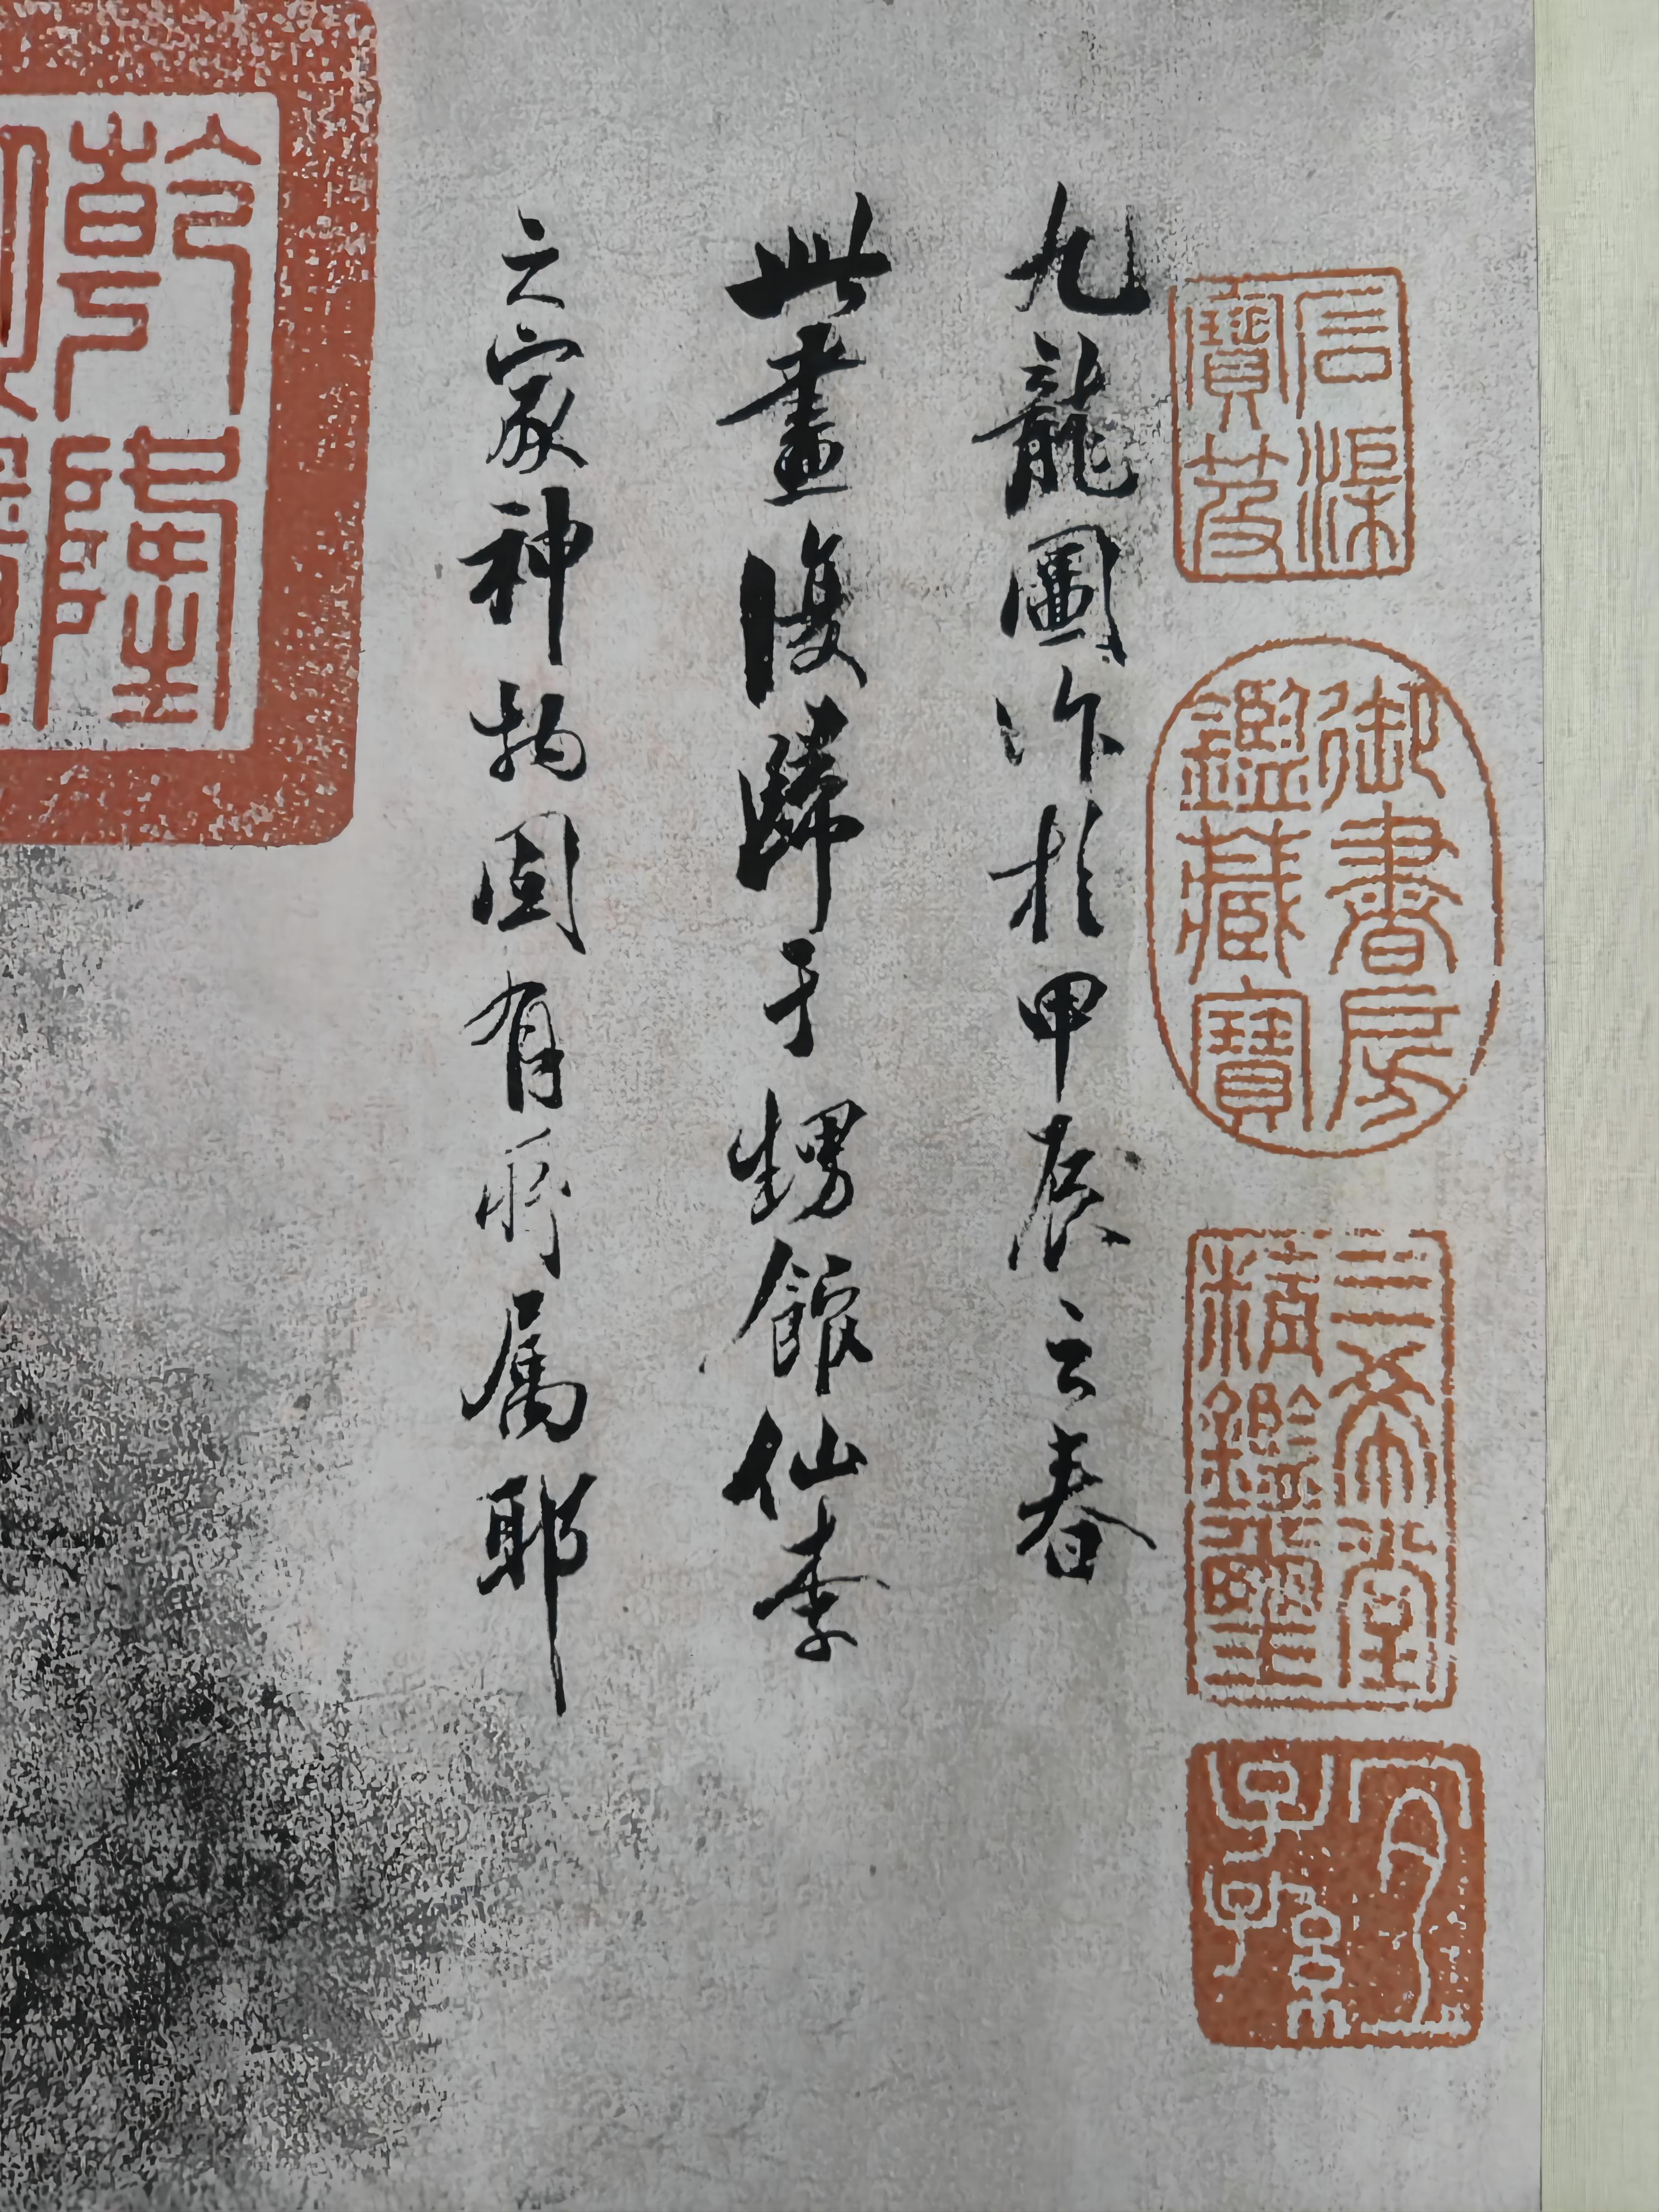 九龍圖作於甲辰之春
此畫復歸于甥館仙李
之家神物固有所屬耶
石渠
寶笈
御書房
鑑藏寶
三希堂
精鑑璽
宜
子孫
乾隆